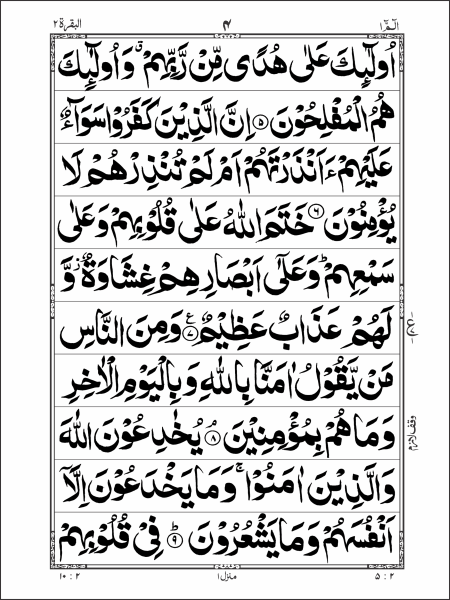 الٓمّٓ ١
٤
البقرة ٢
اُولٰٓئِكَ عَلٰى هُدًى مِّنْ رَّبِّهِمْ ۙ وَاُولٰٓئِكَ
هُمُ الْمُفْلِحُوْنَ ۝٥ اِنَّ الَّذِيْنَ كَفَرُوْا سَوَآءٌ
عَلَيْهِمْ ءَاَنْذَرْتَهُمْ اَمْ لَمْ تُنْذِرْهُمْ لَا
يُؤْمِنُوْنَ ۝٦ خَتَمَ اللّٰهُ عَلٰى قُلُوْبِهِمْ وَعَلٰى
سَمْعِهِمْ ؕ وَعَلٰٓى اَبْصَارِهِمْ غِشَاوَةٌ ؗ وَّ
لَهُمْ عَذَابٌ عَظِيْمٌ ۝٧ ع وَمِنَ النَّاسِ
مَنْ يَّقُوْلُ اٰمَنَّا بِاللّٰهِ وَبِالْيَوْمِ الْاٰخِرِ
وَمَا هُمْ بِمُؤْمِنِيْنَ ۝٨ يُخٰدِعُوْنَ اللّٰهَ
وَالَّذِيْنَ اٰمَنُوْا ۚ وَمَا يَخْدَعُوْنَ اِلَّاۤ
اَنْفُسَهُمْ وَمَا يَشْعُرُوْنَ ۝٩ؕ فِيْ قُلُوْبِهِمْ
وقف لازم
٢ : ٥
منزل ١
٢ : ١٠